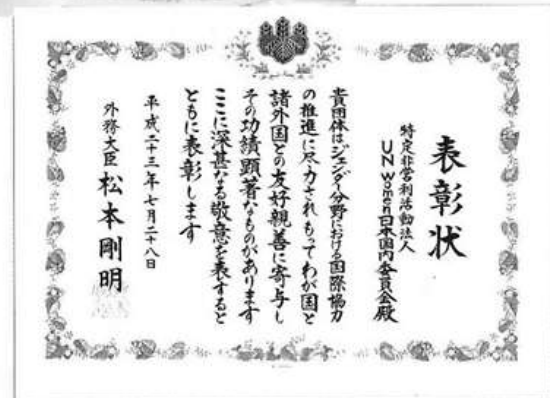 表彰状
特定非営利活動法人
UN Women日本国内委員会殿
貴団体はジェンダー分野における国際協力
の推進に尽力されもってわが国と
諸外国との友好親善に寄与し
その功績顕著なものがあります
ここに深甚なる敬意を表すると
ともに表彰します
平成二十三年七月二十八日
外務大臣 松本剛明